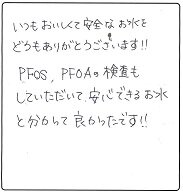 いつもおいしくて安全なお水を
どうもありがとうございます!!
PFOS, PFOAの検査も
していただいて、安心できるお水
と分かって良かったです!!